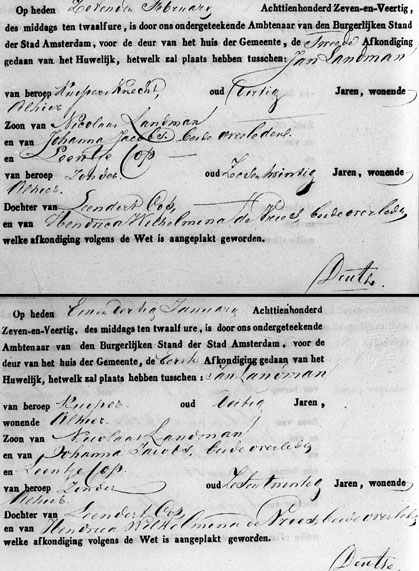 Op heden Zevenden February Achttienhonderd Zeven-en-Veertig,
des middags ten twaalf ure, is door ons ondergeteekende Ambtenaar van den Burgerlijken Stand
der Stad Amsterdam, voor de deur van het huis der Gemeente, de Tweede Afkondiging
gedaan van het Huwelijk, hetwelk zal plaats hebben tusschen: Jan Landman,
van beroep Kuipers Knecht, oud dertig Jaren, wonende
Alhier
Zoon van Nicolaas Landman
en van Johanna Jacobs, beide overleden.
en Leentje Cop
van beroep Zonder oud Zesentwintig Jaren, wonende
Alhier.
Dochter van Leendert Cop,
en van Hendrica Wilhelmina de Vries beide overleden
welke afkondiging volgens de Wet is aangeplakt geworden.
Op heden Eenendertig January Achttienhonderd
Zeven-en-Veertig, des middags ten twaalf ure, is door ons ondergeteekende
Ambtenaar van den Burgerlijken Stand der Stad Amsterdam, voor de
deur van het huis der Gemeente, de Eerste Afkondiging gedaan van het
Huwelijk, hetwelk zal plaats hebben tusschen: Jan Landman
van beroep Kuiper oud dertig Jaren,
wonende Alhier.
Zoon van Nicolaas Landman
en van Johanna Jacobs, beide overleden
en Leentje Cop.
van beroep Zonder oud Zesentwintig Jaren, wonende
Alhier.
Dochter van Leendert Cop,
en van Hendrica Wilhelmina de Vries, beide overleden
welke afkondiging volgens de Wet is aangeplakt geworden.